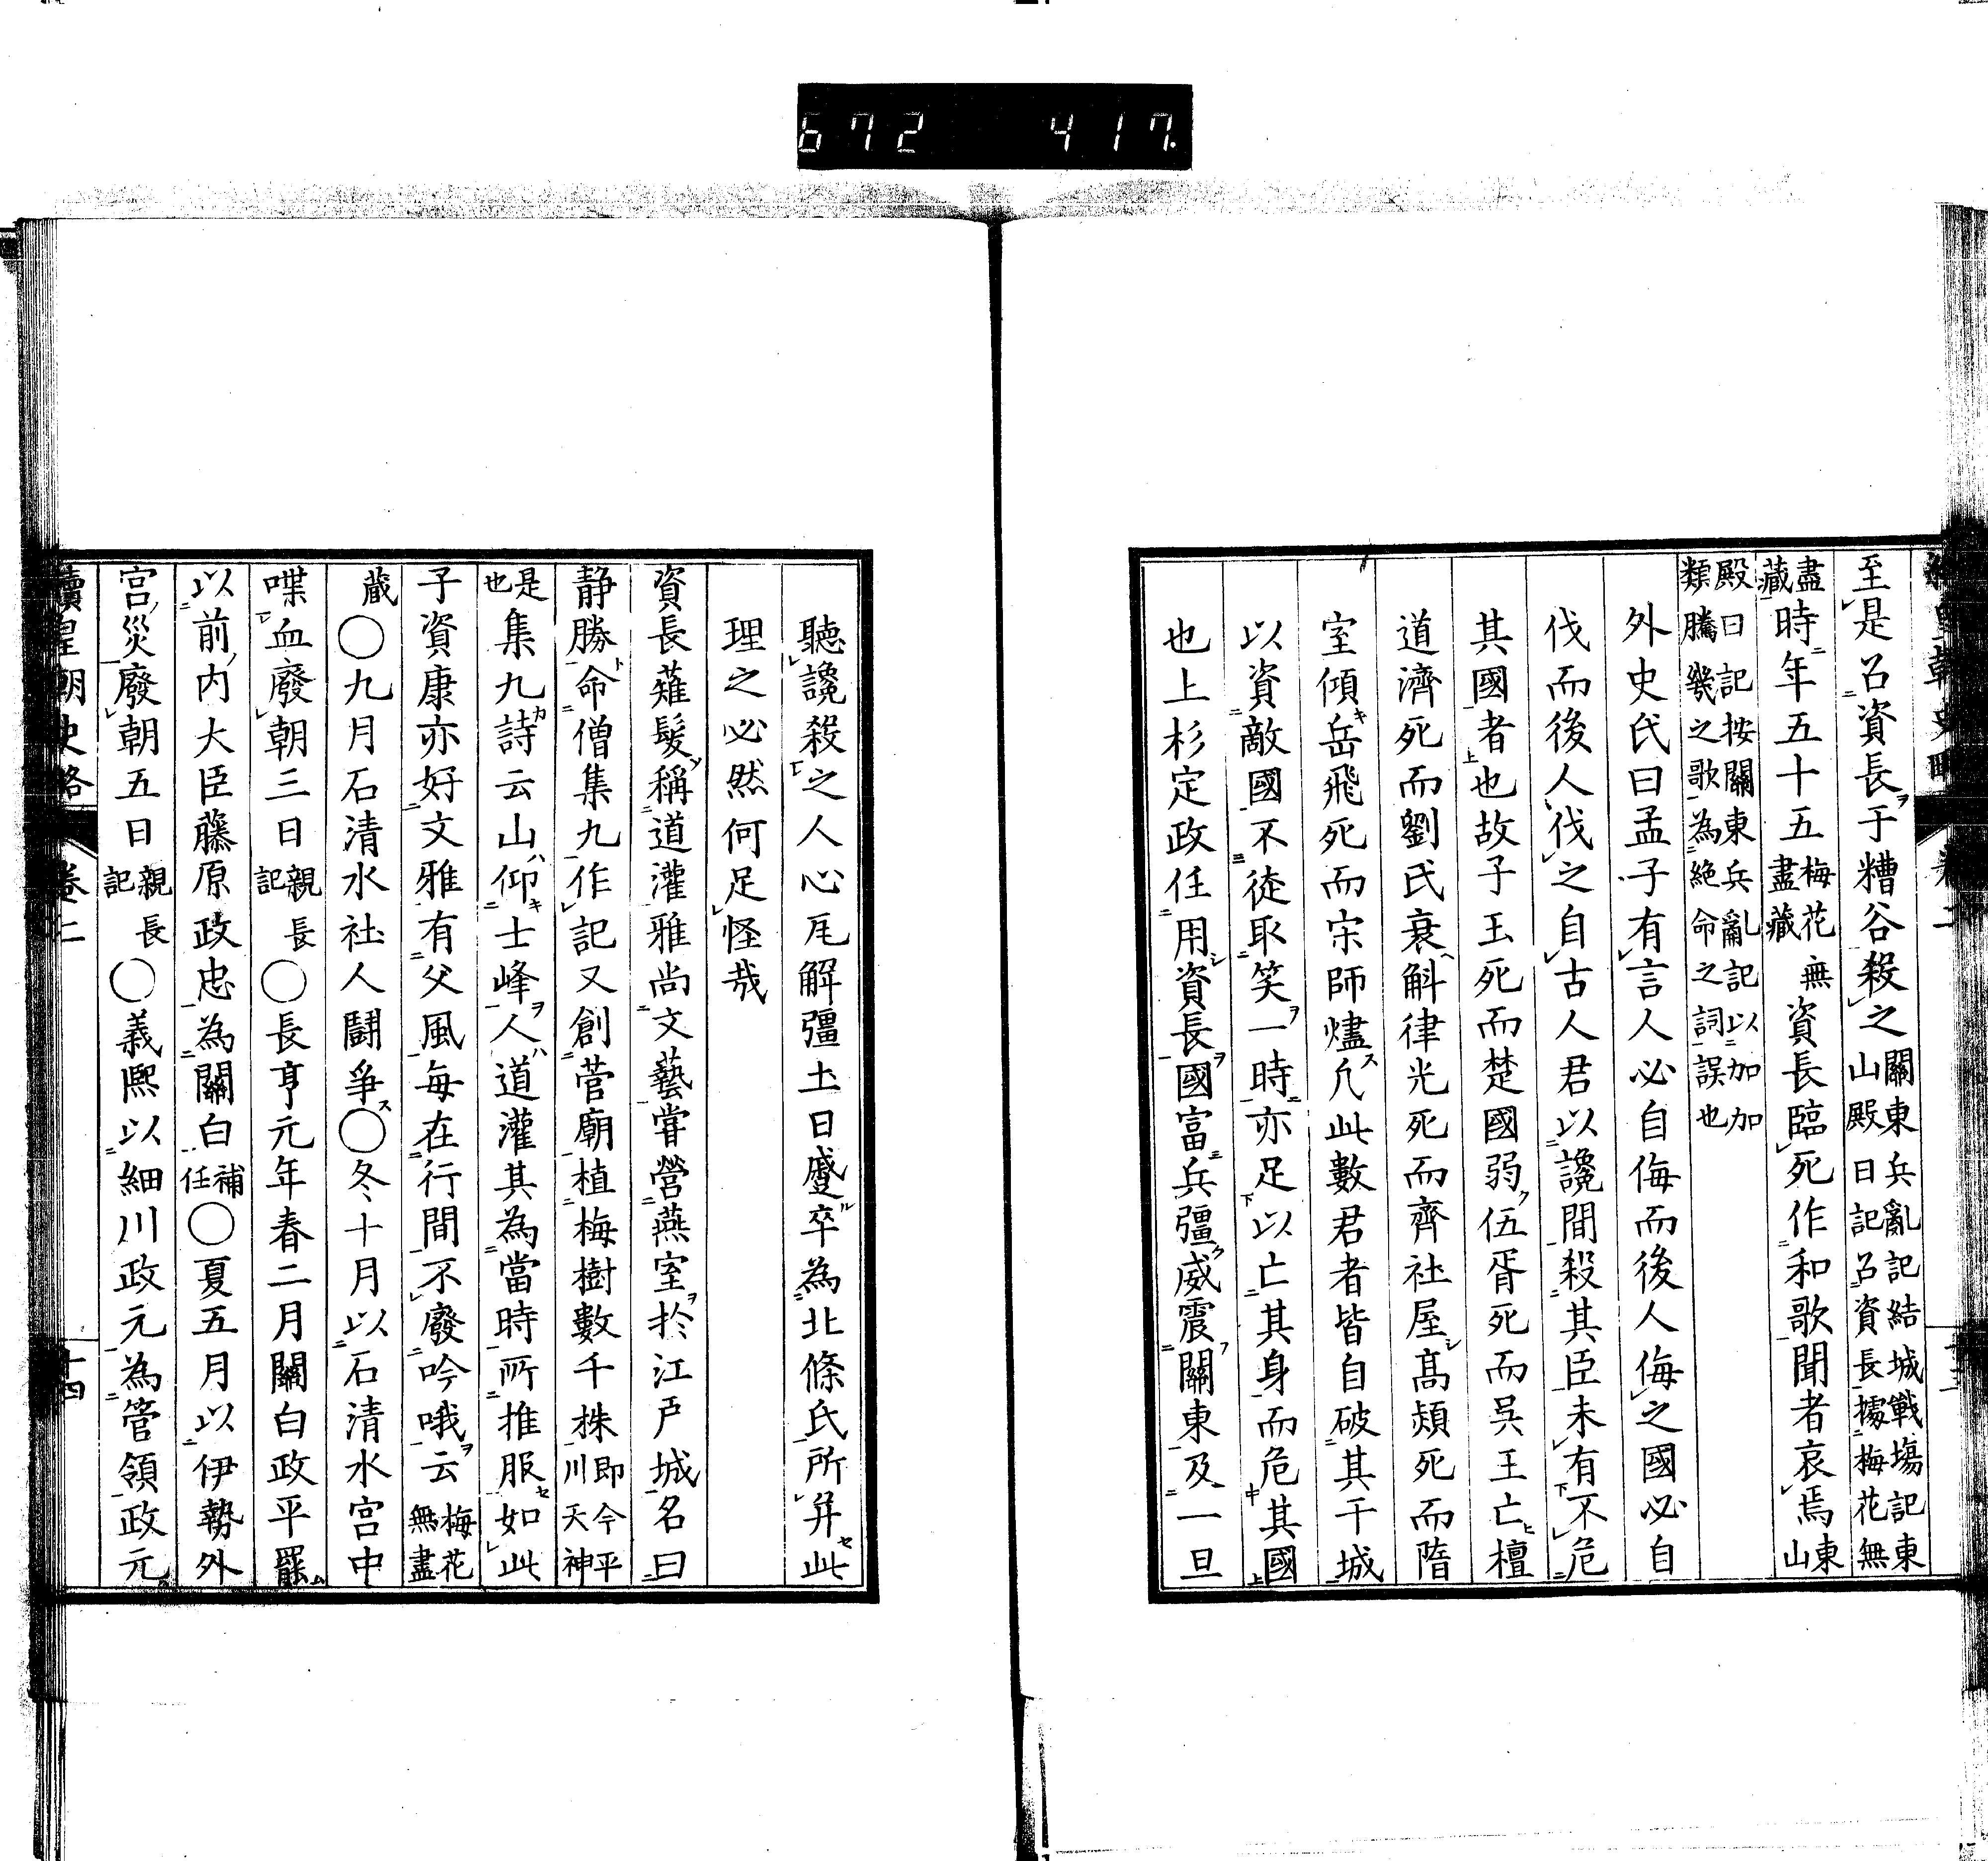 672 417.
續皇朝史略 卷二
至是召資長于糟谷殺之關東兵亂記結城戰場記東山殿日記召資長據梅花無
盡藏時年五十五梅花無盡藏資長臨死作和歌聞者哀焉東山
殿日記按關東兵亂記以加加類騰幾之歌為絕命之詞誤也
外史氏曰孟子有言人必自侮而後人侮之國必自
伐而後人伐之自古人君以讒間殺其臣未有不危
其國者也故子玉死而楚國弱伍胥死而吳王亡檀
道濟死而劉氏衰斛律光死而齊社屋高熲死而隋
室傾岳飛死而宋師燼凡此數君者皆自破其干城
以資敵國不徒取笑一時亦足以亡其身而危其國
也上杉定政任用資長國富兵彊威震關東及一旦
聽讒殺之人心瓦解彊土日蹙卒為北條氏所并此
理之必然何足怪哉
資長薙髮稱道灌雅尚文藝嘗營燕室於江戶城名曰
靜勝命僧集九作記又創菅廟植梅樹數千株即今平川天神
是也集九詩云山仰士峰人道灌其為當時所推服如此
子資康亦好文雅有父風每在行間不廢吟哦云梅花無盡
藏〇九月石清水社人鬪爭〇冬十月以石清水宮中
喋血廢朝三日親長記〇長亨元年春二月關白政平罷
以前內大臣藤原政忠為關白補任〇夏五月以伊勢外
宮災廢朝五日親長記〇義熙以細川政元為管領政元
續皇朝史略 卷二 十四